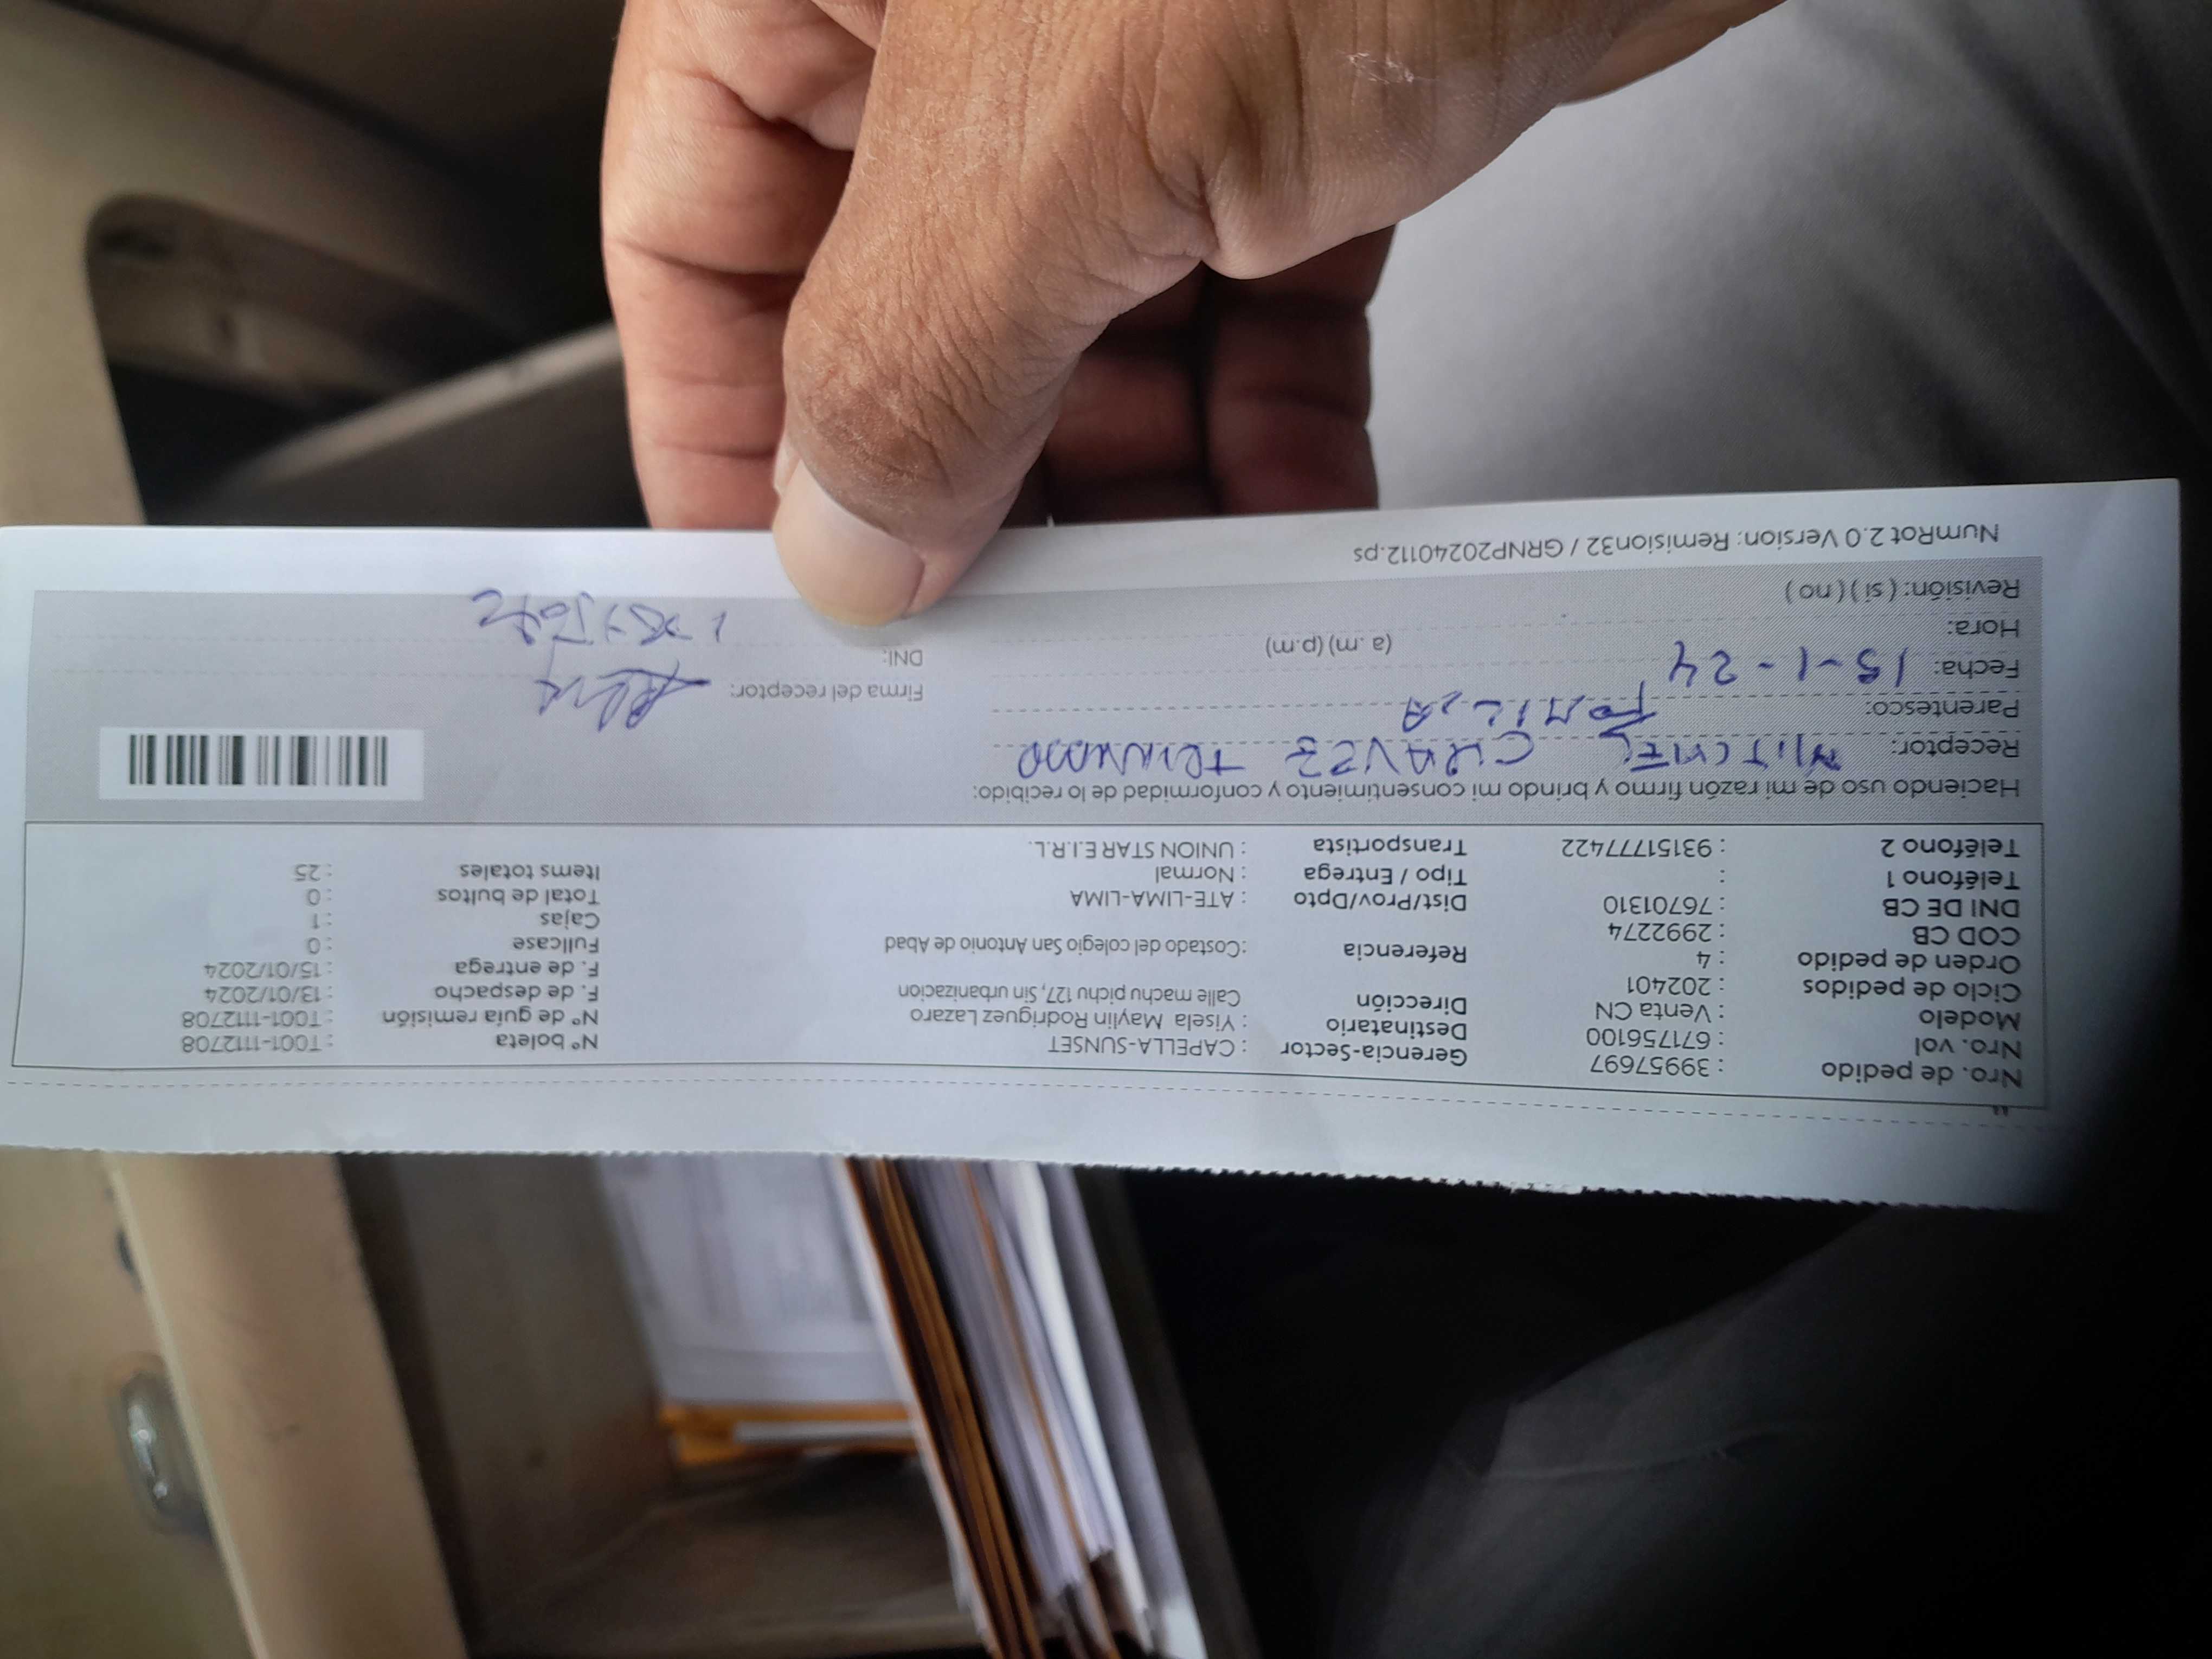 Nro. de pedido : 39957697 Gerencia-Sector : CAPELLA-SUNSET Nº boleta : T001-1112708
Nro. vol : 671756100 Destinatario : Yisela Maylin Rodriguez Lazaro Nº de guía remisión : T001-1112708
Modelo : Venta CN Dirección Calle machu pichu 127, Sin urbanizacion F. de despacho : 13/01/2024
Ciclo de pedidos : 202401 F. de entrega : 15/01/2024
Orden de pedido : 4 Referencia :Costado del colegio San Antonio de Abad Fullcase : 0
COD CB : 2992274 Cajas : 1
DNI DE CB : 76701310 Dist/Prov/Dpto : ATE-LIMA-LIMA Total de bultos : 0
Teléfono 1 : Tipo / Entrega : Normal Items totales : 25
Teléfono 2 : 9315177422 Transportista : UNION STAR E.I.R.L.
Haciendo uso de mi razón firmo y brindo mi consentimiento y conformidad de lo recibido:
Receptor: CHAVEZ
Parentesco: FAMILIA Firma del receptor:
Fecha: 15-1-24 DNI:
Hora: (a .m) (p.m)
Revisión: ( si ) ( no )
NumRot 2.0 Version: Remision32 / GRNP20240112.ps